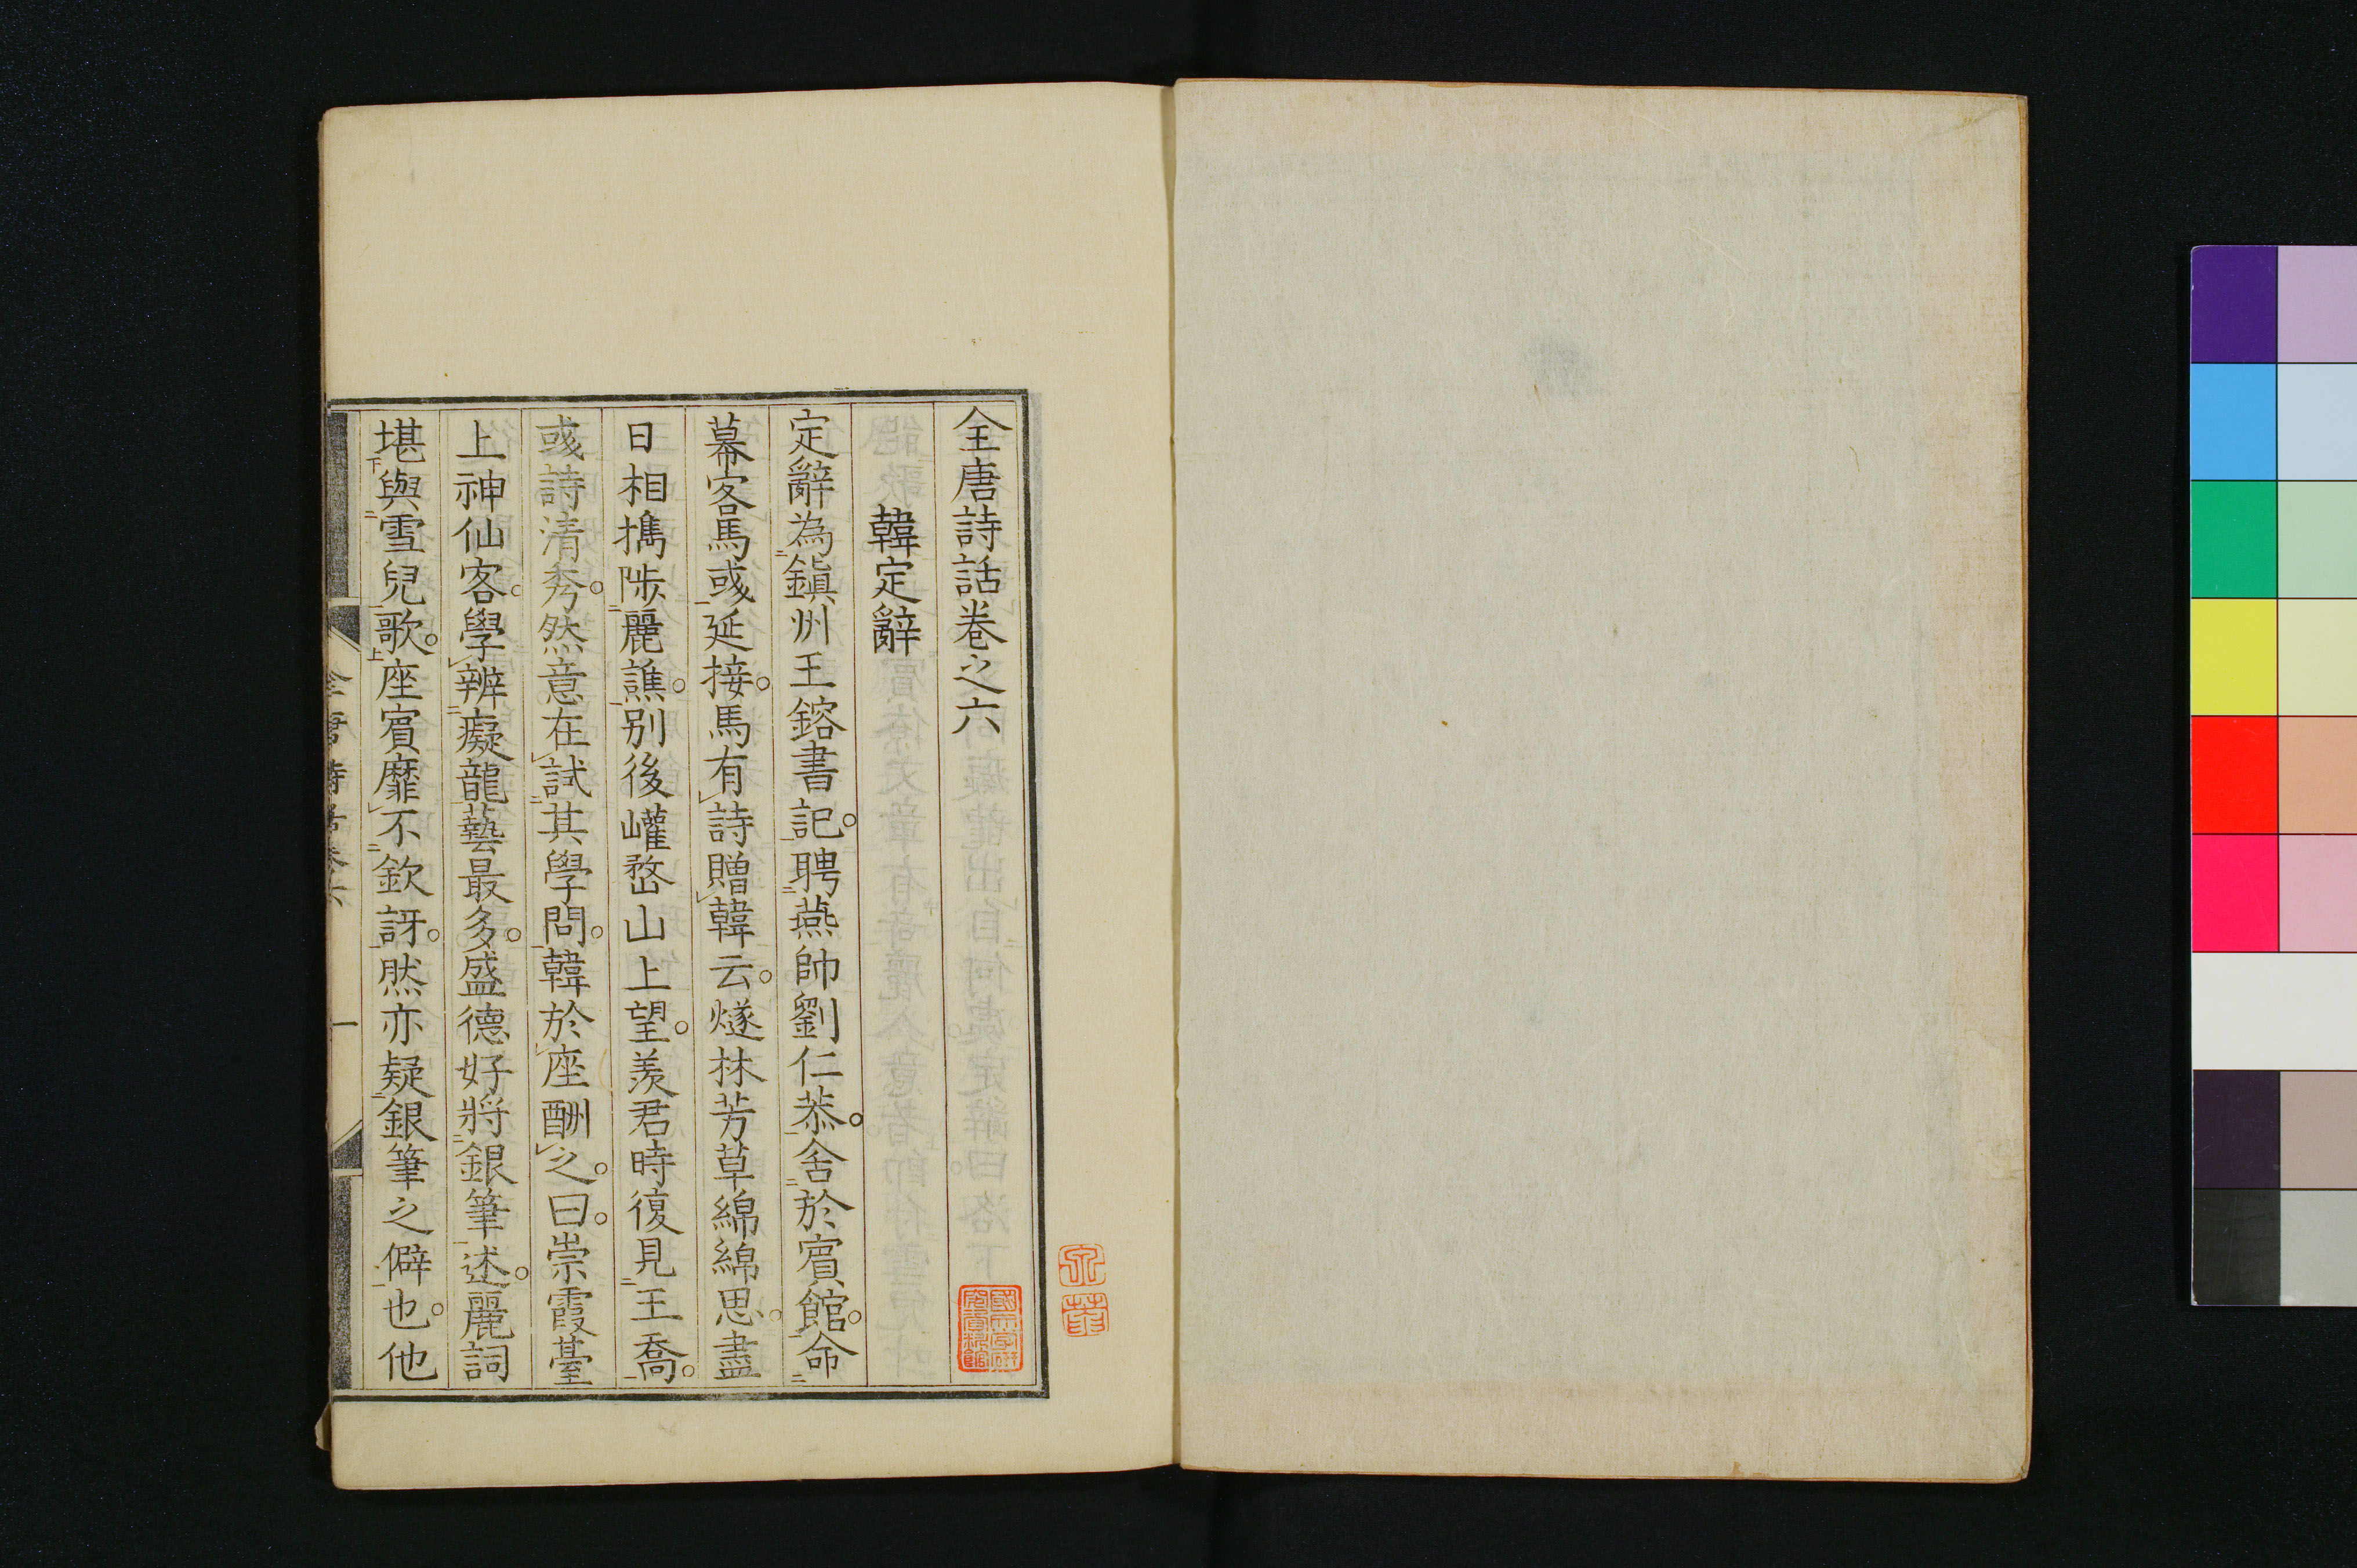 全唐詩話卷之六
韓定辭
定辭為鎮州王鎔書記聘燕帥劉仁恭舍於賔館命
幕客馬彧延接馬有詩贈韓云燧林芳草綿綿思盡
日相擕陟麗譙别後巏嵍山上望羨君時復見王喬
彧詩清秀然意在試其學問韓於座酬之曰崇霞䑓
上神仙客學辨癡龍藝最多盛德好將銀筆述麗詞
堪與雪兒歌座賔靡不欽訝然亦疑銀筆之僻也他
全唐詩話卷六
一